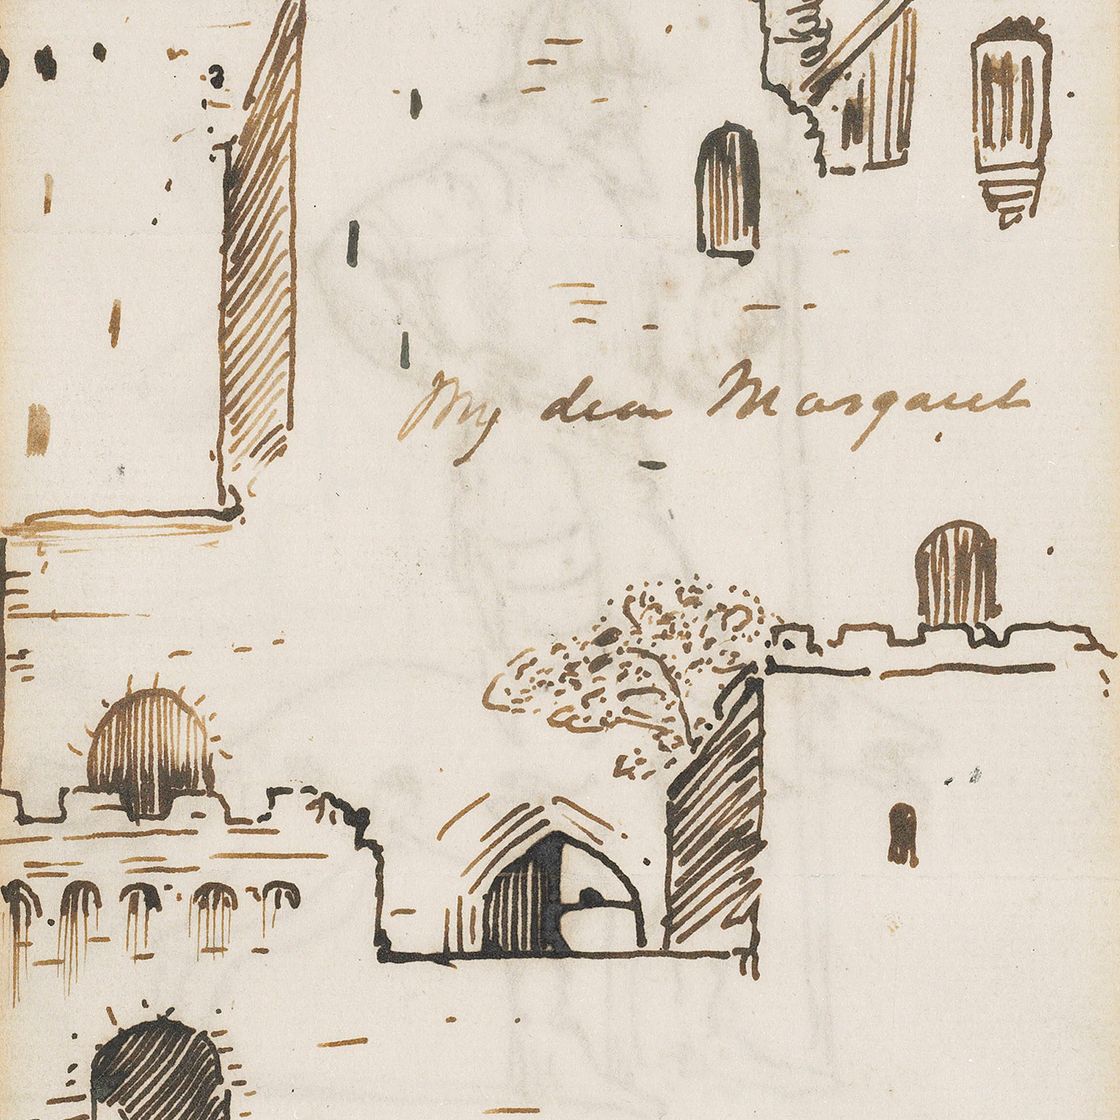 My dear Margaret